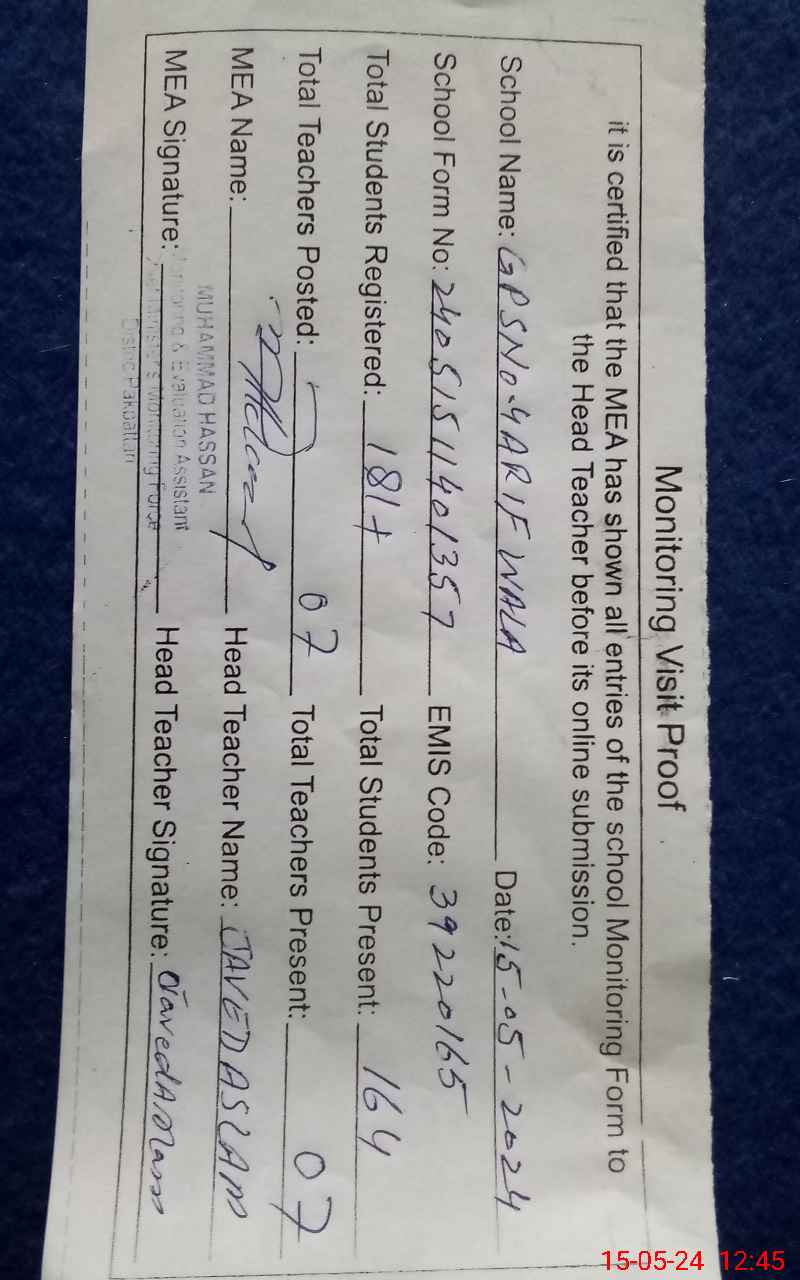 Monitoring Visit Proof
it is certified that the MEA has shown all entries of the school Monitoring Form to
the Head Teacher before its online submission.
School Name: GPSNo.4ARIFWALA Date: 15-05-2024
School Form No: 24051511401357 EMIS Code: 39220165
Total Students Registered: 181+ Total Students Present: 164
Total Teachers Posted: 07 Total Teachers Present: 07
MEA Name: Head Teacher Name: JAVED ASLAM
MUHAMMAD HASSAN
Monitoring & Evaluation Assistant
MEA Signature: Head Teacher Signature: Javed Aslam
Monitoring Force
District Pakpattan
15-05-24 12:45